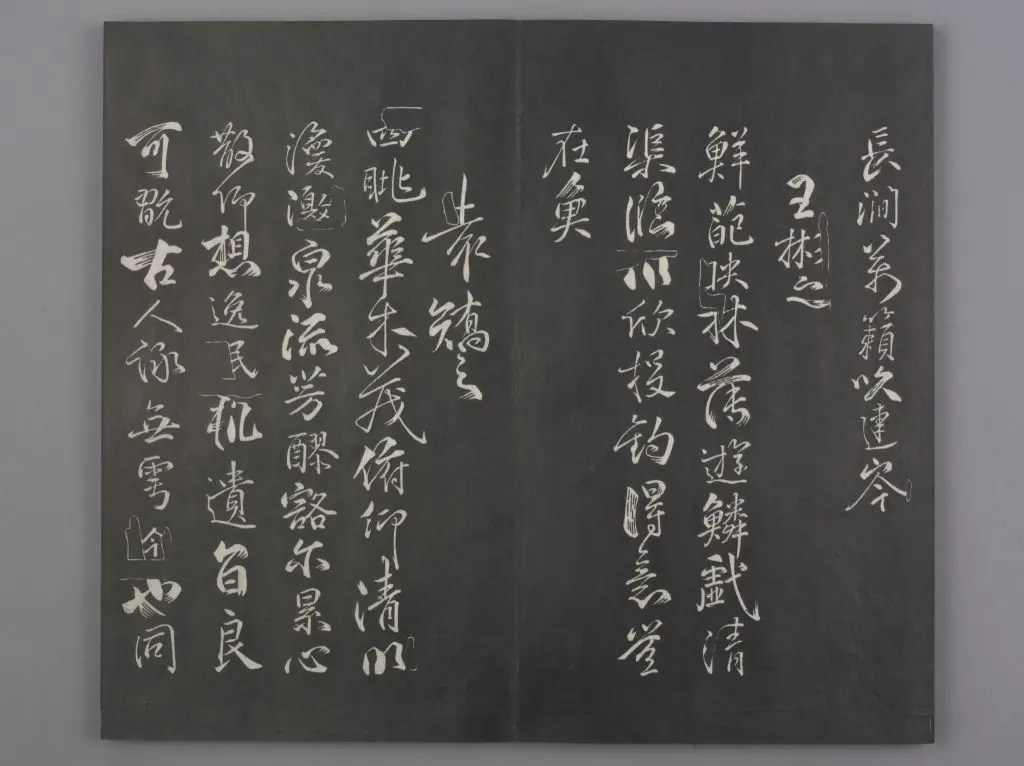 長澗萬籟吹連岑
王彬之
鮮葩映林薄遊鱗戲清
渠臨川欣投釣得意豈
在魚
袁嶠之
四眺華木茂俯仰清川
渙激泉流芳醪豁尒累心
散仰想逸民軌遺音良
可翫古人詠無雩今也同